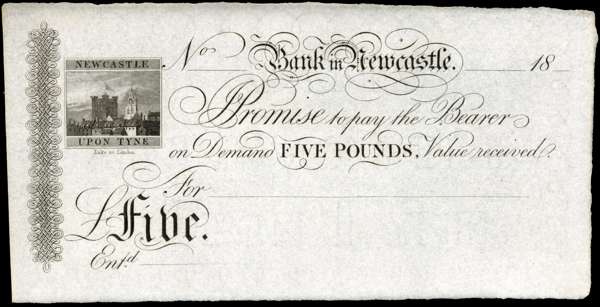 NEWCASTLE
UPON TYNE
No Bank in Newcastle. 18
I Promise to pay the Bearer
on Demand FIVE POUNDS, Value received.
For
£ Five.
Entd